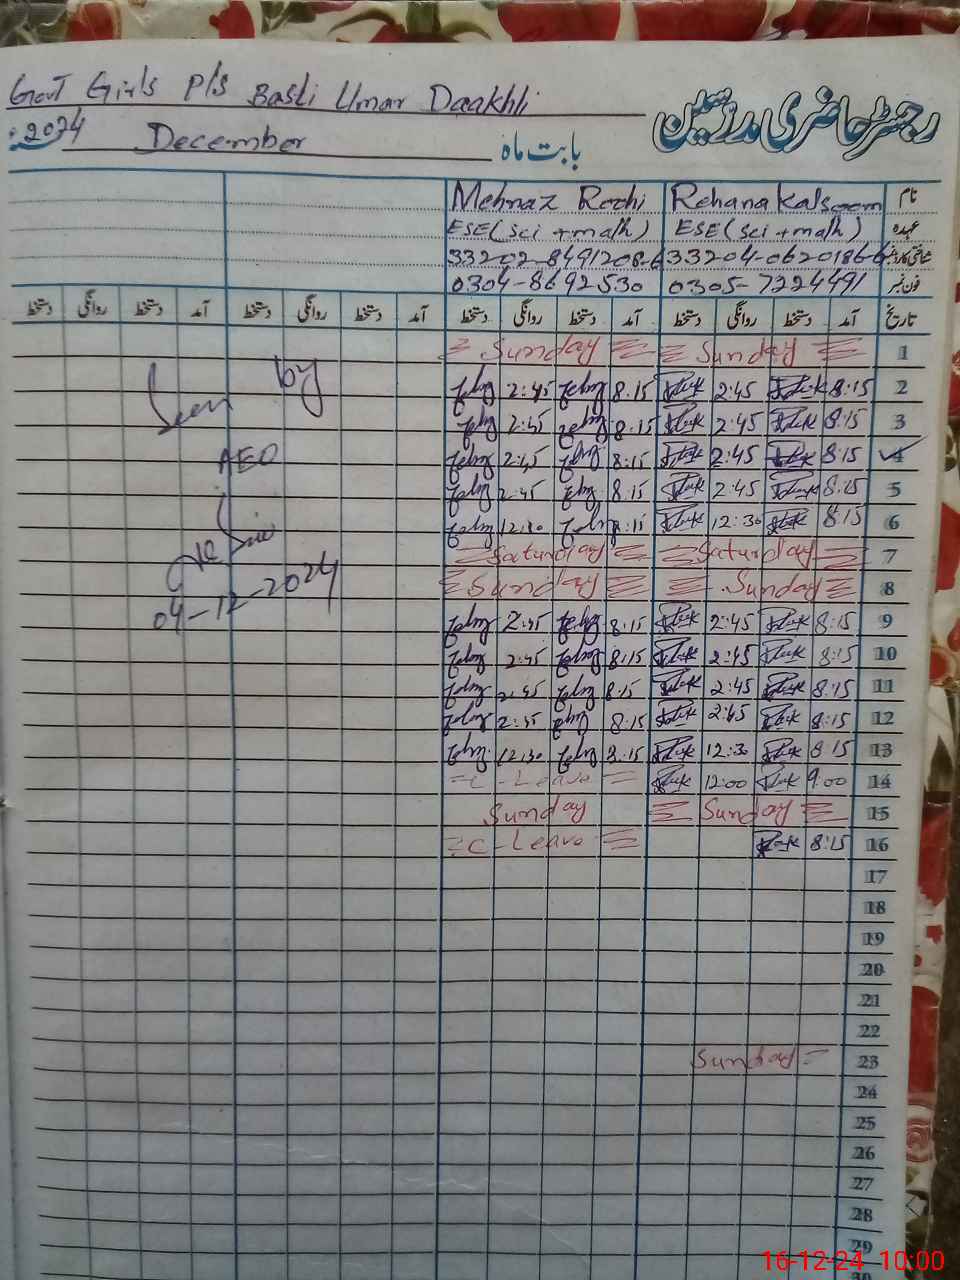 Govt Girls P/s Basti Umar Daakhli
رجسٹر حاضری مدرسین
2024 December بابت ماہ
Mehnaz Rochi Rehana Kalsoom نام
ESE (Sci + math) ESE (Sci + math) عہدہ
33202-8491208-6 33204-0620186-6
0304-8692530 0305-7224491 فون نمبر
دستخط روانگی دستخط آمد دستخط روانگی دستخط آمد دستخط روانگی دستخط آمد دستخط روانگی دستخط آمد تاریخ
Sunday Sunday 1
2:45 8:15 2:45 8:15 2
2:45 8:15 2:45 8:15 3
2:45 8:15 2:45 8:15 4
2:45 8:15 2:45 8:15 5
12:30 8:15 12:30 8:15 6
Saturday Saturday 7
Sunday Sunday 8
2:45 8:15 2:45 8:15 9
2:45 8:15 2:45 8:15 10
2:45 8:15 2:45 8:15 11
2:45 8:15 2:45 8:15 12
12:30 8:15 12:30 8:15 13
C-Leave 12:00 9:00 14
Sunday Sunday 15
C-Leave 8:15 16
17
18
19
20
21
22
Sunday 23
24
25
26
27
28
29
30
Seen by
AEO
04-12-2024
16-12-24 10:00